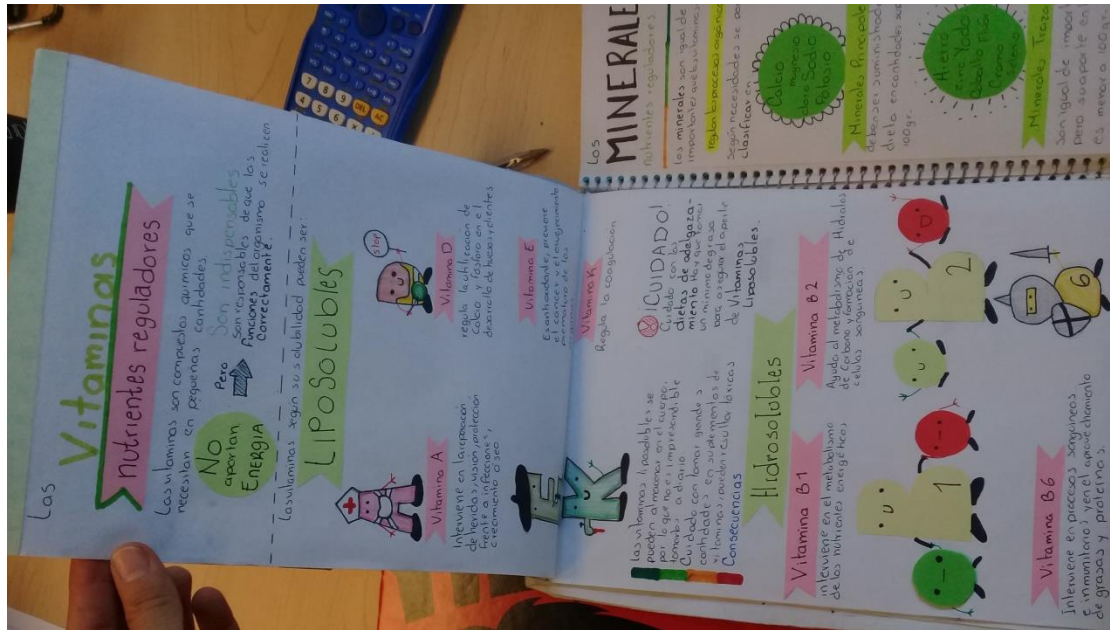 Las
Vitaminas
nutrientes reguladores
Las vitaminas son compuestos quimicos que se
necesitan en pequeñas cantidades.
No
aportan
ENERGIA
Pero
Son indispensables
Son responsables de que las
Funciones del organismo se realicen
Correctamente.
Las vitaminas según su solubilidad pueden ser:
LIPOSOLUBLES
STOP
Vitamina A
Interviene en la reparación
de heridas, visión, protección
frente a infecciones,
crecimiento óseo
Vitamina D
regula la utilización de
Calcio y fosforo en el
desarrollo de huesos y dientes
E K
Vitamina E
Es antioxidante, previene
el cancer y el envejecimiento
prematuro de las
Vitamina K
Regula la coagulación
Las vitaminas liposolubles se
pueden almacenar en el cuerpo,
por lo que no es imprescindible
tomarlas a diario
Cuidado con tomar grandes
cantidades en suplementos de
vitaminas, pueden resultar tóxicas
Consecuencias
¡CUIDADO!
Cuidado con las
dietas de adelgaza-
miento Hay que tomar
un minimo de grasa
para asegurar el aporte
de Vitaminas
Liposolubles.
Hidrosolubles
Vitamina B1
interviene en el metabolismo
de los nutrientes energéticos
Vitamina B2
Ayuda al metabolismo de Hidratos
de Carbono y formación de
celulas sanguineas.
1
2
6
Vitamina B6
Interviene en procesos sanguineos
e inmunitario y en el aprovechamiento
de grasas y proteinas.
Los
MINERALE
nutrientes reguladores
Los minerales son igual de
importantes que las vitaminas
regulan los procesos orgánico
Según necesidades se po
clasificar en
Calcio
magnesio
Cloro Sodio
Potasio
Minerales Principale
deben ser suministrad
dieta en cantidades sup
100gr.
Hierro
Zinc Yodo
Cobalto Flúor
Cromo
Minerales Traza
Son igual de impor
pero su aporte en l
es menor a 100gr.
7 8 9 DEL AC
4 5 6